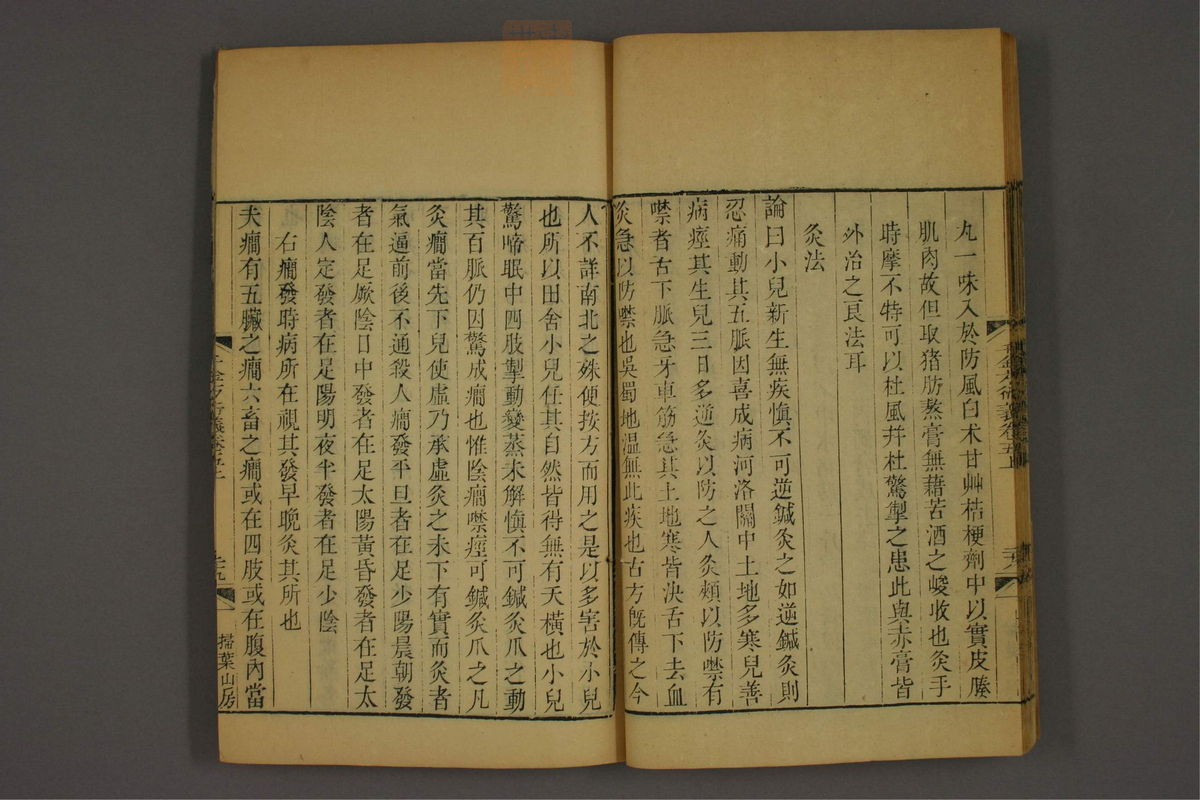 九一味入於防風白朮甘艸桔梗劑中以實皮腠
肌肉故但取猪肪熬膏無藉苦酒之峻收也灸手
時摩不特可以杜風幷杜驚掣之患此與赤膏皆
外治之良法耳
灸法
論曰小兒新生無疾愼不可逆鍼灸之如逆鍼灸則
忍痛動其五脈因喜成病河洛關中土地多寒兒善
病痙其生兒三日多逆灸以防之人灸頰以防噤有
噤者舌下脈急牙車筋急其土地寒皆決舌下去血
灸急以防噤也吳蜀地溫無此疾也古方旣傳之今
人不詳南北之殊便按方而用之是以多害於小兒
也所以田舍小兒任其自然皆得無有夭橫也小兒
驚啼眠中四肢掣動變蒸未解愼不可鍼灸爪之動
其百脈仍因驚成癎也惟陰癎噤痙可鍼灸爪之凡
灸癎當先下兒使虛乃承虛灸之未下有實而灸者
氣逼前後不通殺人癎發平旦者在足少陽晨朝發
者在足厥陰日中發者在足太陽黃昏發者在足太
陰人定發者在足陽明夜半發者在足少陰
右癎發時病所在視其發早晚灸其所也
夫癎有五臟之癎六畜之癎或在四肢或在腹內當
掃葉山房